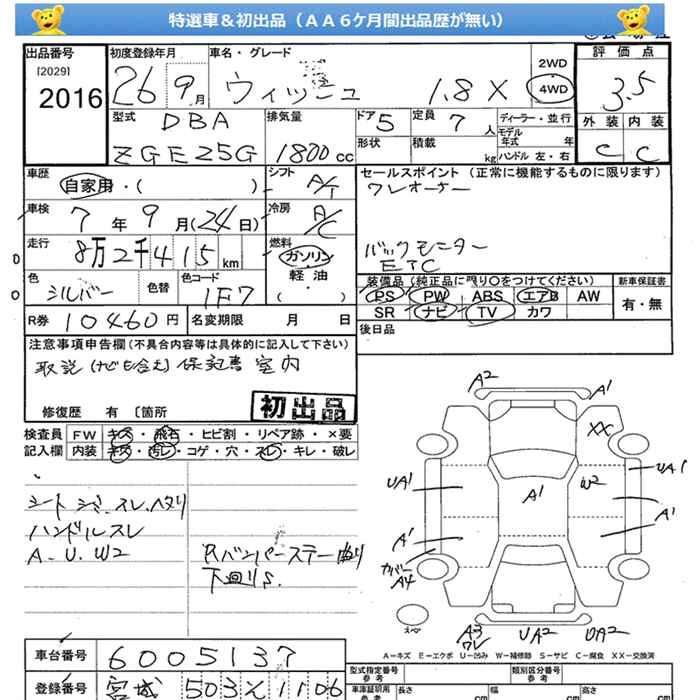 特選車＆初出品（ＡＡ６ケ月間出品歴が無い）
出品番号 [2029] 2016
初度登録年月 26 9月
車名・グレード 1.8 X
2WD 4WD
評価点 3.5
外装 C 内装 C
型式 DBA ZGE25G
排気量 1800cc
ドア 5 定員 7人
形状 積載 kg
ディーラー・並行
モデル年式 年
ハンドル 左・右
車歴 自家用・( )
シフト A/T
セールスポイント（正常に機能するものに限ります）
ワンオーナー
バックモニター
ETC
車検 7年 9月(24日)
冷房 A/C
走行 8万2千415km
燃料 ガソリン 軽油 ( )
色 シルバー 色替 色コード 1F7
装備品（純正品に限り○をつけてください） 新車保証書
PS PW ABS エアB AW 有・無
SR ナビ TV カワ
R券 10460円 名変期限 月 日
後日品
注意事項申告欄（不具合内容等は具体的に記入して下さい）
取説(ナビも含む)保証書 室内
修復歴 有 〔箇所
初出品
検査員 FW キズ・飛石・ヒビ割・リペア跡・×要
記入欄 内装 キズ・汚レ・コゲ・穴・スレ・キレ・破レ
シートシミ、スレ、ヘタリ
ハンドルスレ
A.U.W2
Rバンパーステー曲り
下廻りS.
A2 A1
XX
UA1 UA1
A1 W2
A1 A1
カバー A4
スペア
A3 ワレ UA2 UA2
A－キズ E－エクボ U－凹み W－補修跡 S－サビ C－腐食 XX－交換済
車台番号 6005137
登録番号 宮城 503 1106
型式指定番号 参考 類別区分番号 参考
車庫証明用 参考 長さ cm 幅 cm 高さ cm